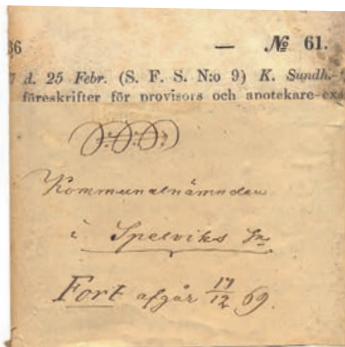 36 — № 61.
7 d. 25 Febr. (S. F. S. N:o 9) K. Sundh.-
föreskrifter för provisors och apotekare-exa
Kommunalnämnden
i Spelviks
Fort afgår 17/12 69.